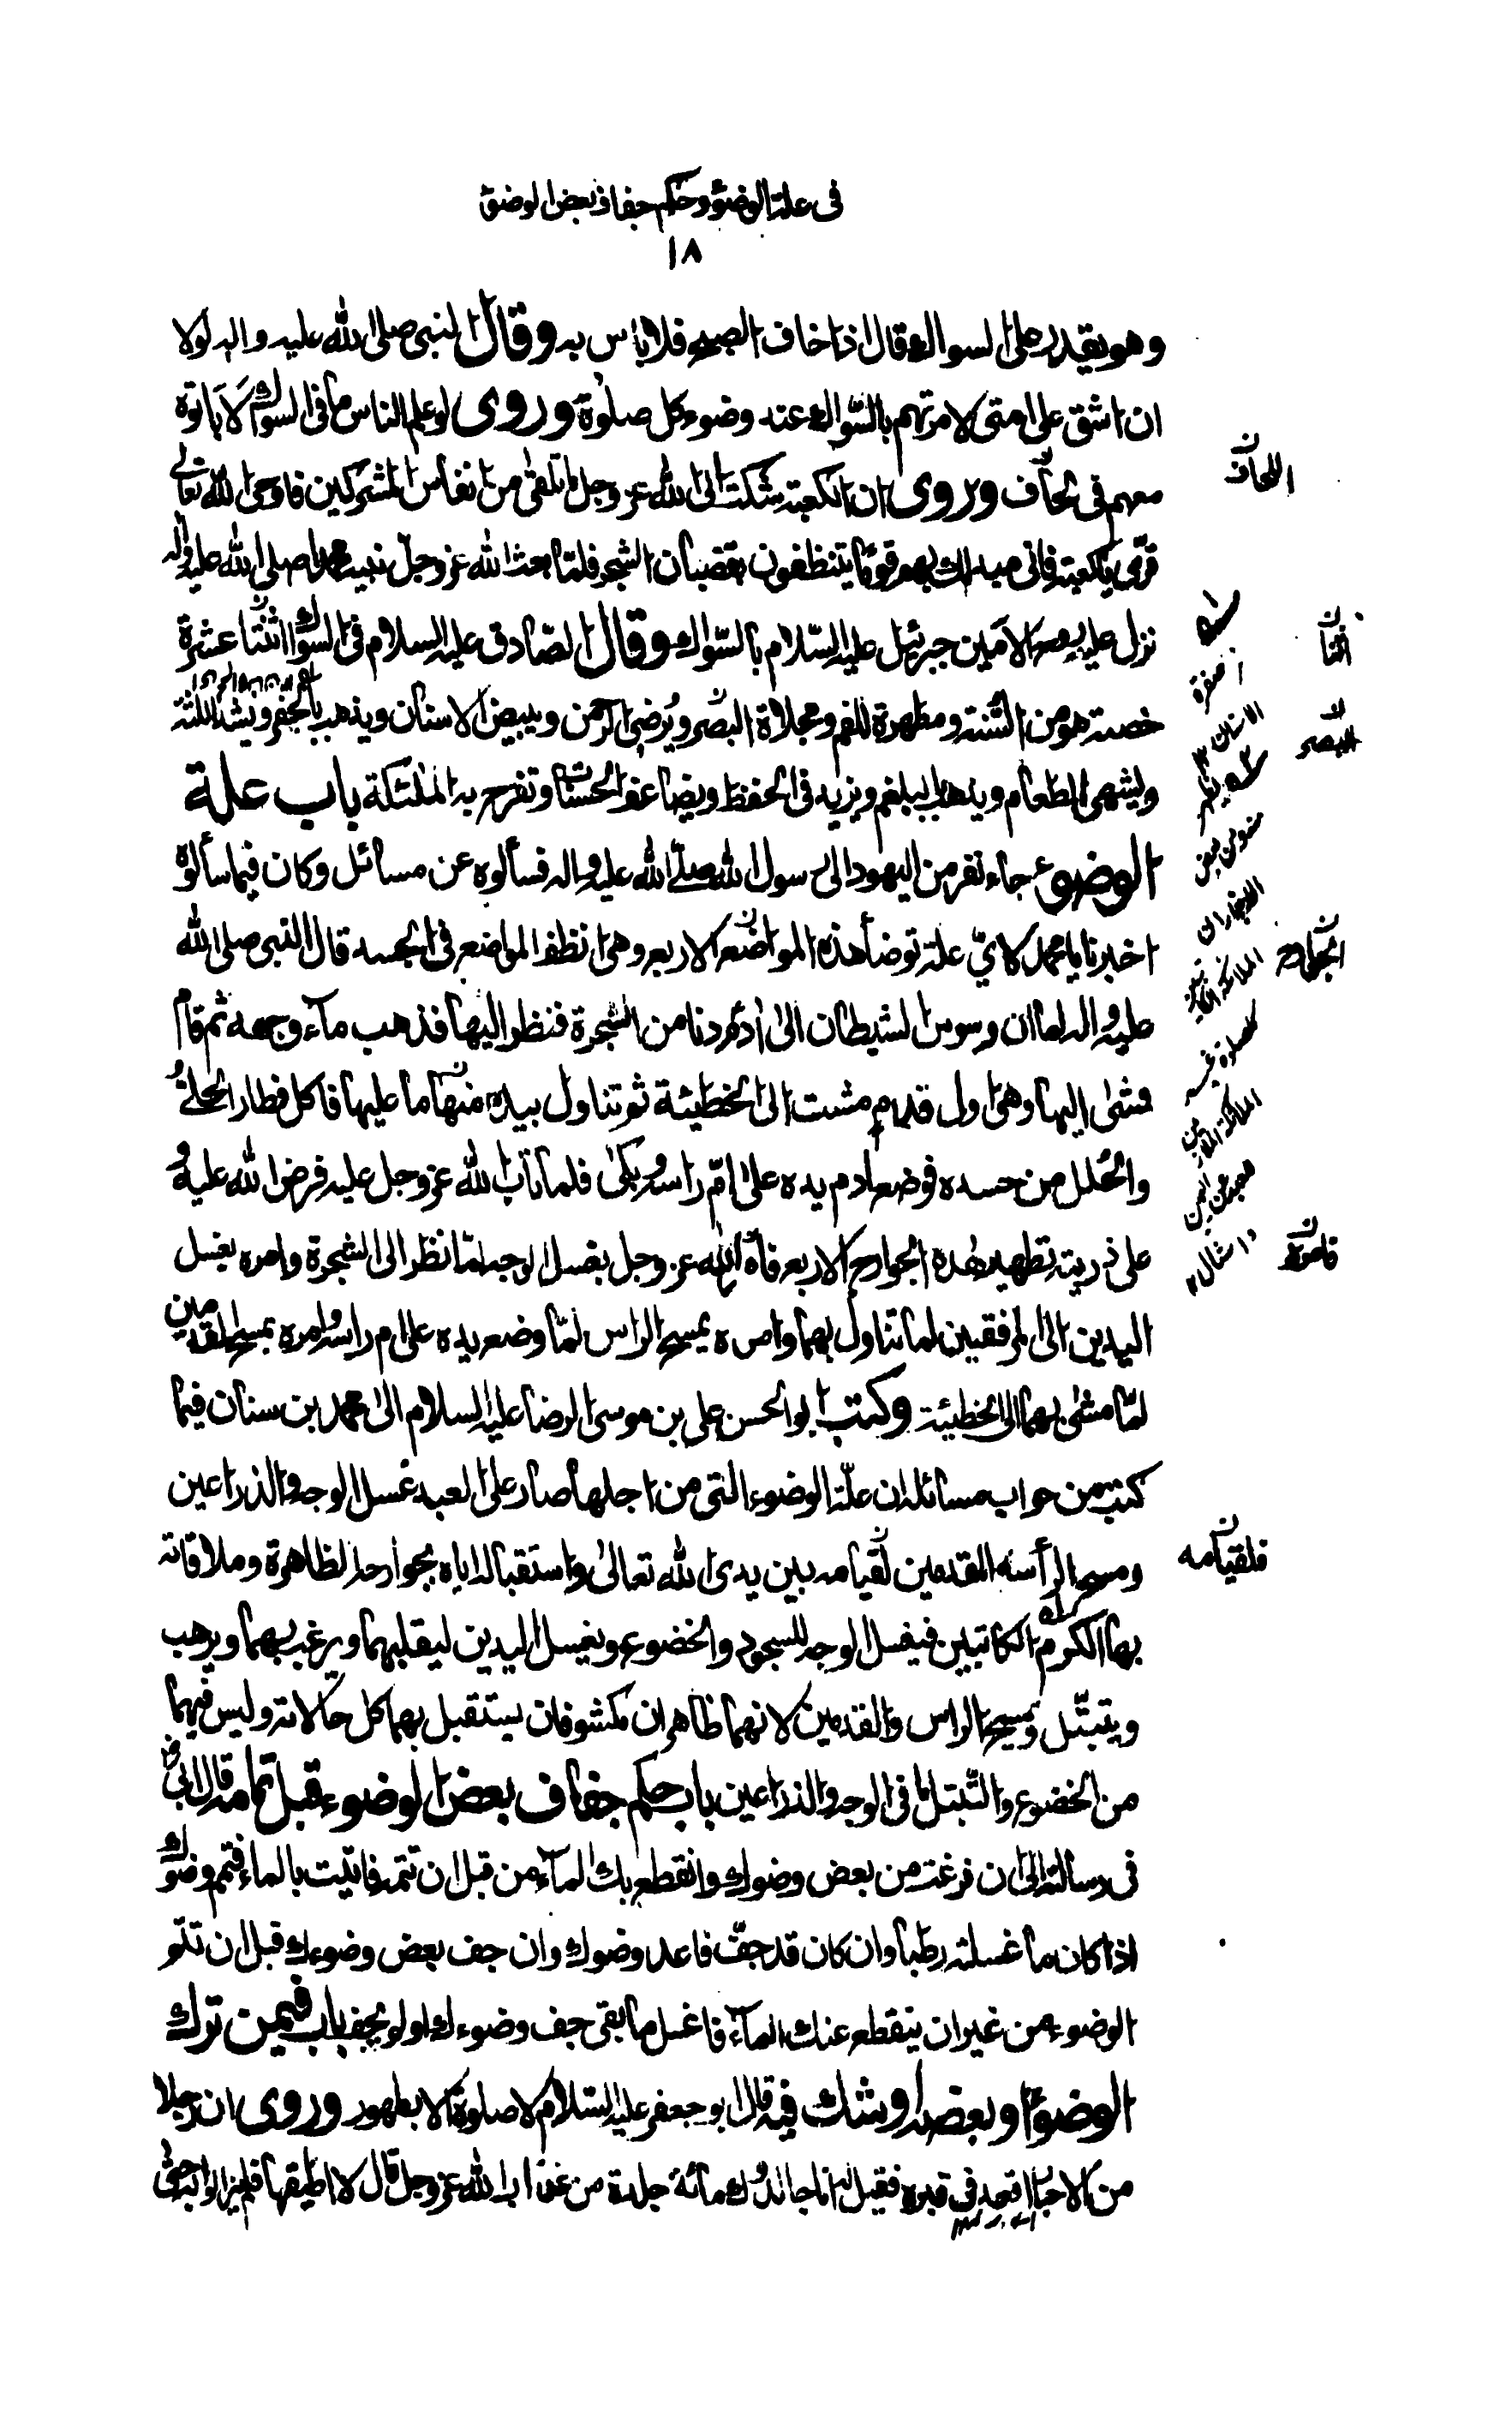 فى علة الوضوء وحكم جفاف بعض الوضوء
١٨
وهو يقدر على السواك قال اذا خاف الصبح فلا باس به وقال النبى صلى الله عليه واله لولا
ان اشق على امتى لامرتهم بالسّواك عند وضوء كل صلوة وروى لو علم الناس ما فى السواك لاباتوه
معهم فى لحاف وروى ان الكعبة شكت الى الله عز وجل ما تلقى من انفاس المشركين فاوحى الله تعالى
قرّى يا كعبة فانى مبدلك بهم قوما يتنظفون بقضبان الشجر فلمّا بعث الله عز وجل نبيه محمدا صلى الله عليه واله
نزل عليه الروح الامين جبرئيل عليه السّلام بالسّواك وقال الصّادق عليه السلام فى السواك اثنتا عشرة
خصلة هو من السّنة ومطهرة للفم ومجلاة البصر ويُرضى الرحمن ويبيض الاسنان ويذهب بالحفر ويشد اللثة
ويشهى الطعام ويذهب البلغم ويزيد فى الحفظ ويضاعف الحسنات وتفرح به الملئكة باب علة
الوضوء جاء نفر من اليهود الى رسول الله صلّى الله عليه واله فسألوه عن مسائل وكان فيما سألوه
اخبرنا يا محمد لاىّ علة توضأ هذه المواضع الاربعة وهى انظف المواضع فى الجسد قال النبى صلى الله
عليه واله لما ان وسوس الشيطان الى ادم دنا من الشجرة فنظر اليها فذهب مآء وجهه ثم قام
ومشى اليها وهى اول قدم مشت الى الخطيئة ثم تناول بيده منها ما عليها فاكل فطار الحلىّ
والحُلل من جسده فوضع ادم يده على امّ راسه وبكى فلما تاب الله عز وجل عليه فرض الله عليه و
على ذريته تطهير هذه الجوارح الاربع فأمر الله عز وجل بغسل الوجه لمّا نظر الى الشجرة وامره بغسل
اليدين الى المرفقين لما تناول بهما وامره بمسح الراس لمّا وضع يده على ام راسه وامره بمسح القدمين
لمّا مشى بهما الى الخطيئة وكتب ابو الحسن على بن موسى الرضا عليه السلام الى محمد بن سنان فيما
كتب من جواب مسائله ان علّة الوضوء التى من اجلها صار على العبد غسل الوجه والذراعين
ومسح الرأس والقدمين لقيامه بين يدى الله تعالى واستقباله اياه بجوارحه الظاهرة وملاقاته
بها الكرام الكاتبين فيغسل الوجه للسجود والخضوع ويغسل اليدين ليقلبهما ويرغب بهما ويرهب
ويتبتّل ويمسح الراس والقدمين لانهما ظاهران مكشوفان يستقبل بهما كل حالاته وليس فيهما
من الخضوع والتّبتل ما فى الوجه والذراعين باب حكم جفاف بعض الوضوء قبل تمامه قال ابى رض
فى رسالته الىّ ان فرغت من بعض وضوءك وانقطع بك المآء من قبل ان تتمه فاتيت بالماء فتمم وضوءك
اذا كان ما غسلته رطبا وان كان قد جفّ فاعد وضوءك وان جف بعض وضوءك قبل ان تتمّ
الوضوء من غير ان ينقطع عنك المآء فاغسل ما بقى جف وضوءك او لم يجف باب فيمن ترك
الوضوء او بعضه او شك فيه قال ابو جعفر عليه السّلام لا صلوة الا بطهور وروى ان رجلا
من الاحبار اقعد فى قبره فقيل له انا جالدوك مائة جلدة من عذاب الله عز وجل قال لا اطيقها فلم يزالوا به حتى
اللحاف ن
اثنتان ن
للبصر ن
الجوارح ن
فامره ن
فلقيامه ن
صفرة
الاسنان